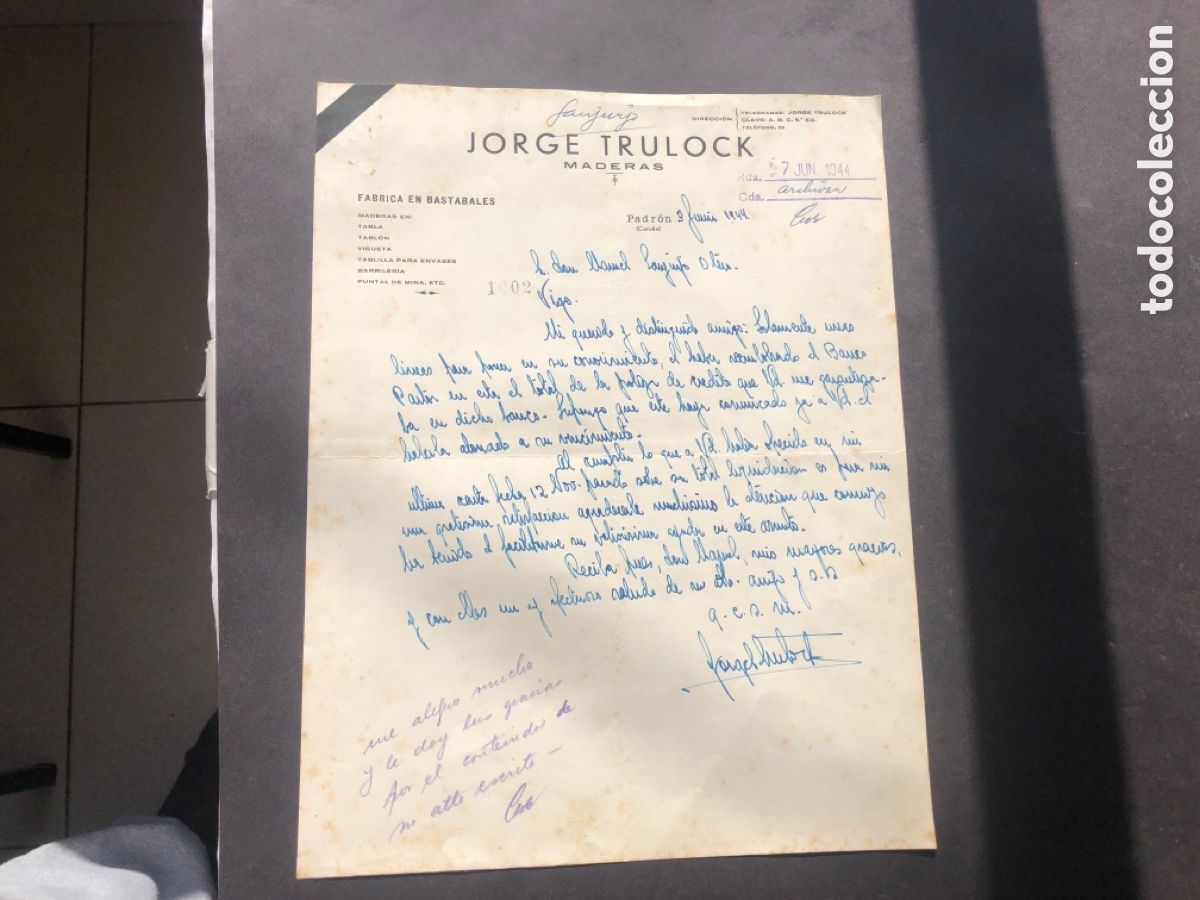 Sanjurjo
DIRECCIÓN
TELEGRAMAS: JORGE TRULOCK
CLAVE: A. B. C. 5.ª ED.
TELÉFONO, 59
JORGE TRULOCK
MADERAS
Rda. 7 JUN. 1944
Cda. archivar
FABRICA EN BASTABALES
MADERAS EN:
TABLA
TABLÓN
VIGUETA
TABLILLA PARA ENVASES
BARRILERÍA
PUNTAL DE MINA, ETC.
1002
Padrón 3 Junio 1944
(Coruña)
S. don Manuel Sanjurjo Otero.
Vigo.
Mi querido y distinguido amigo: Solamente unas
líneas para poner en su conocimiento, el haber reembolsado al Banco
Pastor en esta el total de la póliza de credito que Vd. me garantiza-
ba en dicho banco. Supongo que este haya comunicado ya a Vd. el
haberla abonado a su vencimiento.
Al cumplir lo que a Vd. habia ofrecido en mi
ultima carta fecha 12 Nov. pasado sobre su total liquidacion es para mi
una gratisima satisfaccion agradecerle muchisimo la atencion que conmigo
ha tenido al facilitarme su valiosisima ayuda en este asunto.
Reciba pues, don Manuel, mis mayores gracias,
y con ellas un afectuoso saludo de su amigo y s.s.
q. e. s. m.
Jorge Trulock
me alegro mucho
y le doy las gracias
por el contenido de
su atto escrito —
todocoleccion